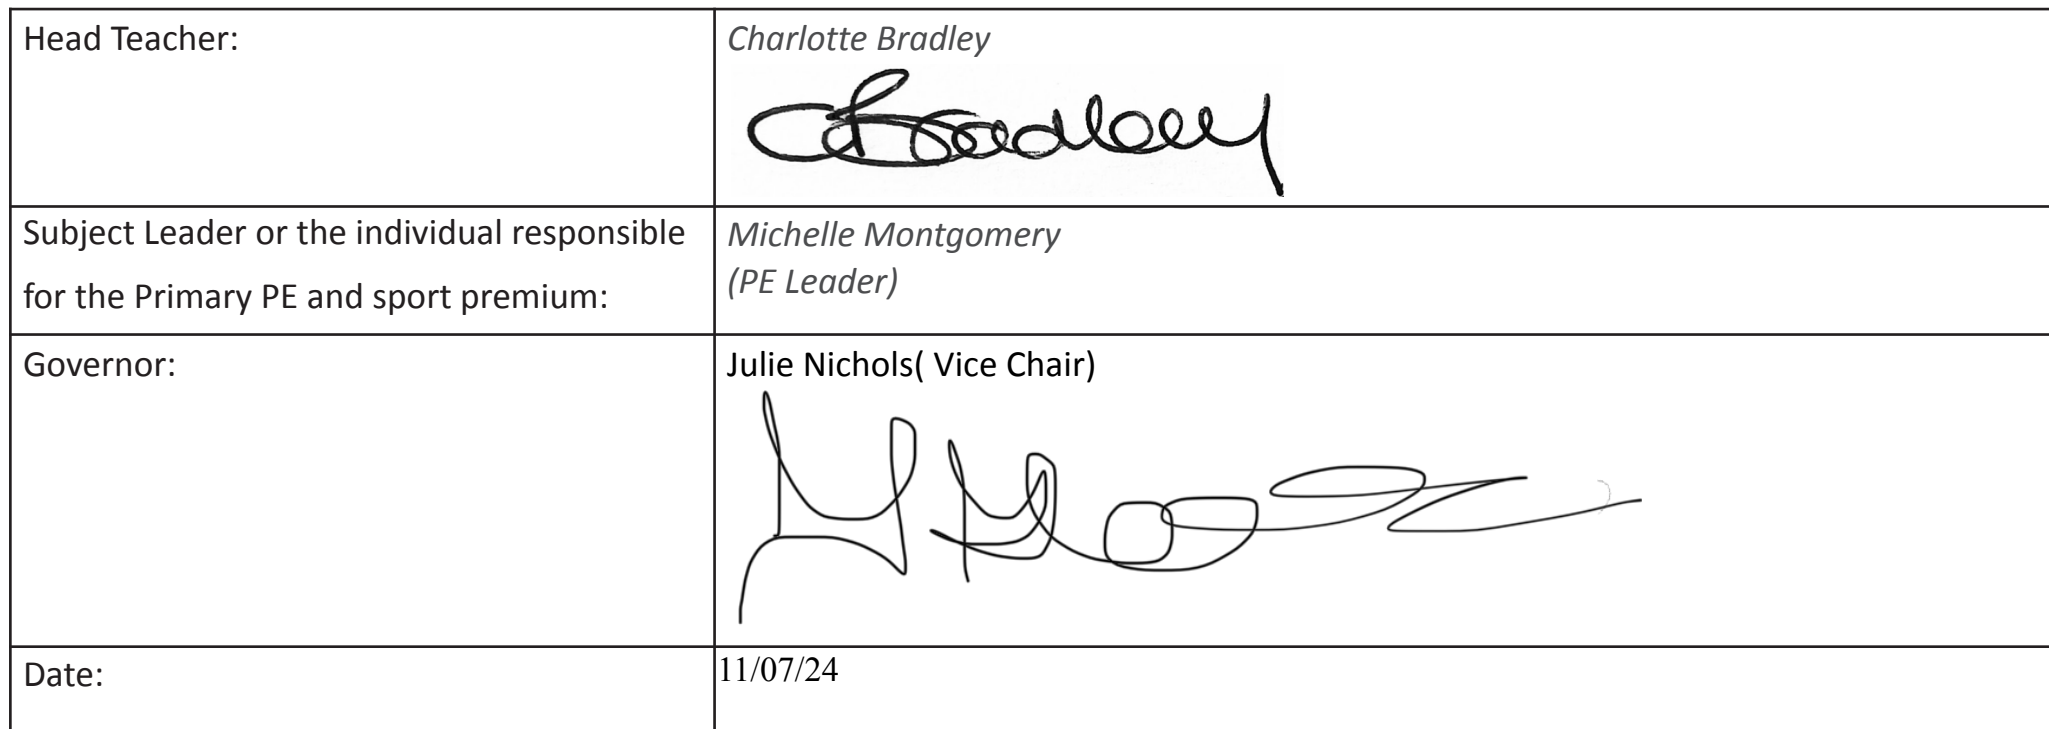 Head Teacher:
Charlotte Bradley
CBradley
Subject Leader or the individual responsible
for the Primary PE and sport premium:
Michelle Montgomery
(PE Leader)
Governor:
Julie Nichols( Vice Chair)
Date:
11/07/24